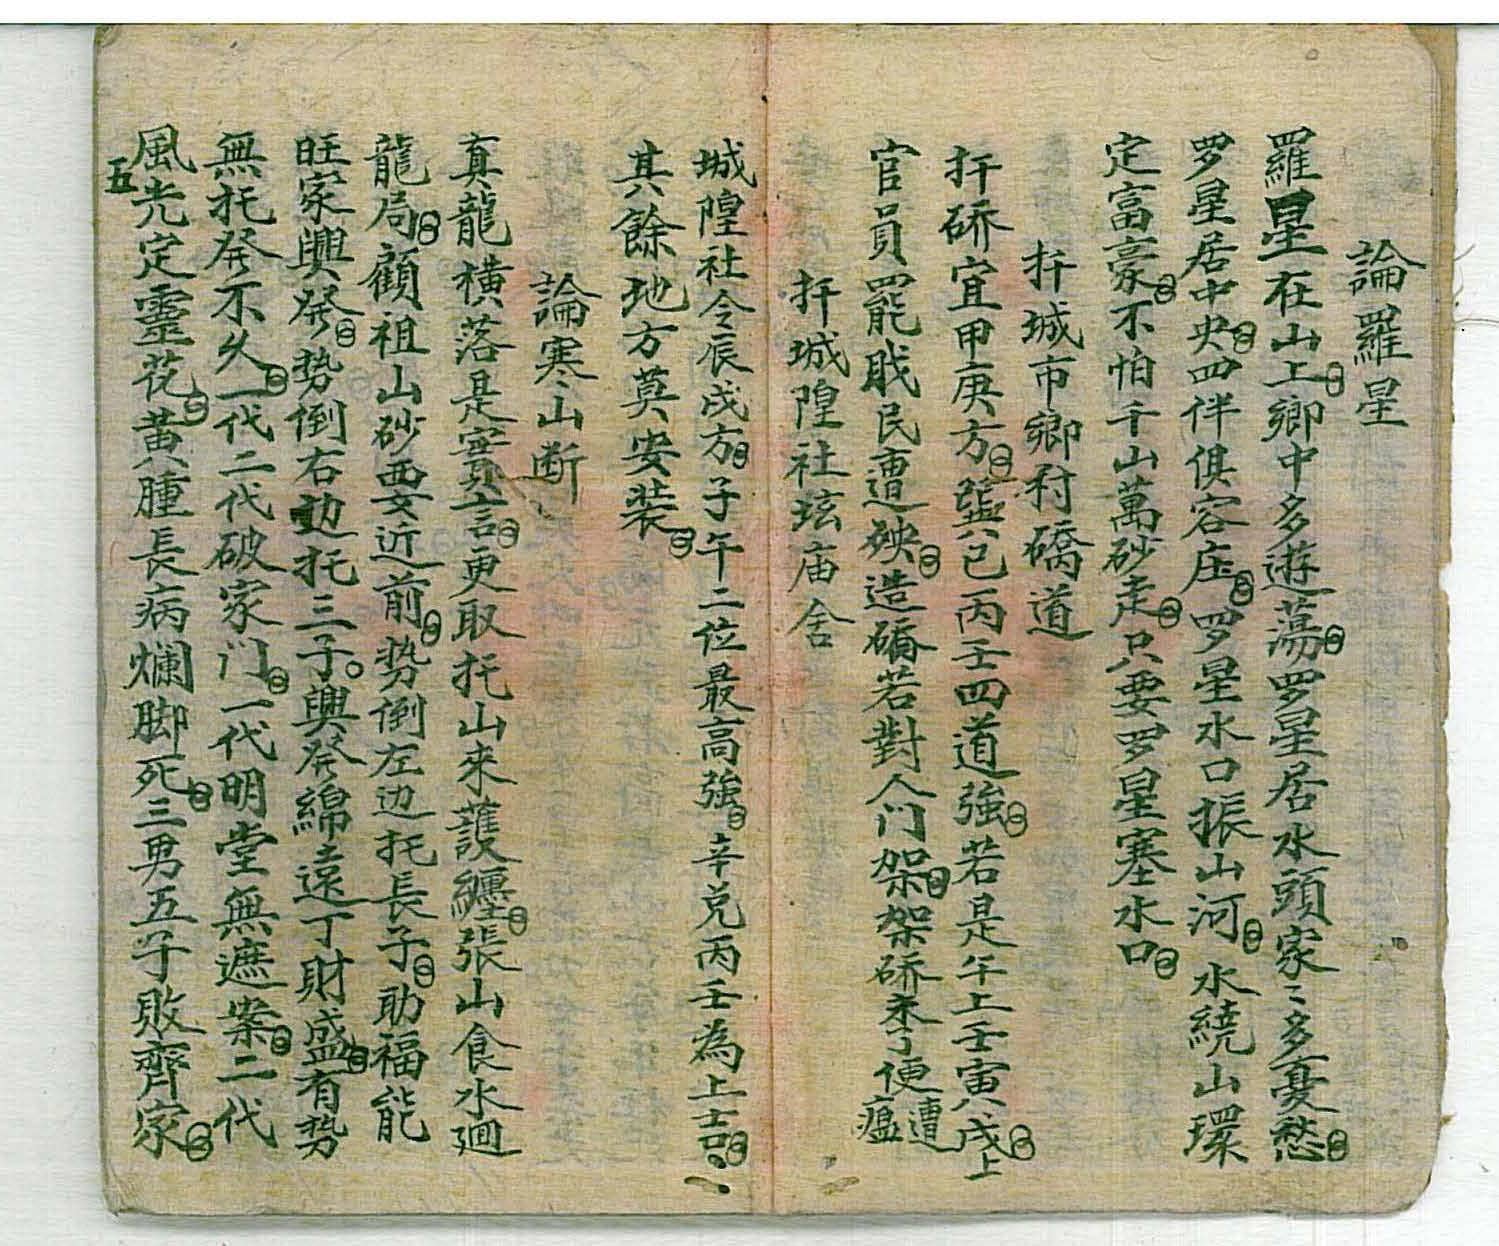 論羅星
羅星在山上鄉中多遊蕩罗星居水頭家〻多憂愁
罗星居中央四伴俱容庄罗星水口振山河水繞山環
定富豪不怕千山萬砂走只要罗星塞水口
扦城市鄉村礄道
扦硚宜甲庚方巽巳丙壬四道強若是午上壬寅戌上
官員罷戝民遭殃造礄若對人门架架硚未了便遭瘟
扦城隍社坛庙舍
城隍社令辰戌方子午二位最高強辛兑丙壬為上吉
其餘地方莫安装
論寒山断
真龍橫落是寔言更取托山來護纏張山食水廻
龍局顧祖山砂要近前势倒左边托長子助福能
旺家興発势倒右边托三子興発綿遠丁財盛有势
無托発不久一代二代破家门一代明堂無遮案二代
風光定靈花黄腫長病爛脚死三男五子敗齊家
五